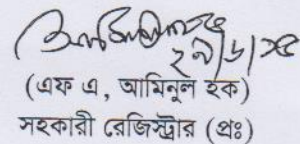 ২৯/৬/১৫
(এফ এ, আমিনুল হক)
সহকারী রেজিস্ট্রার (প্রঃ)